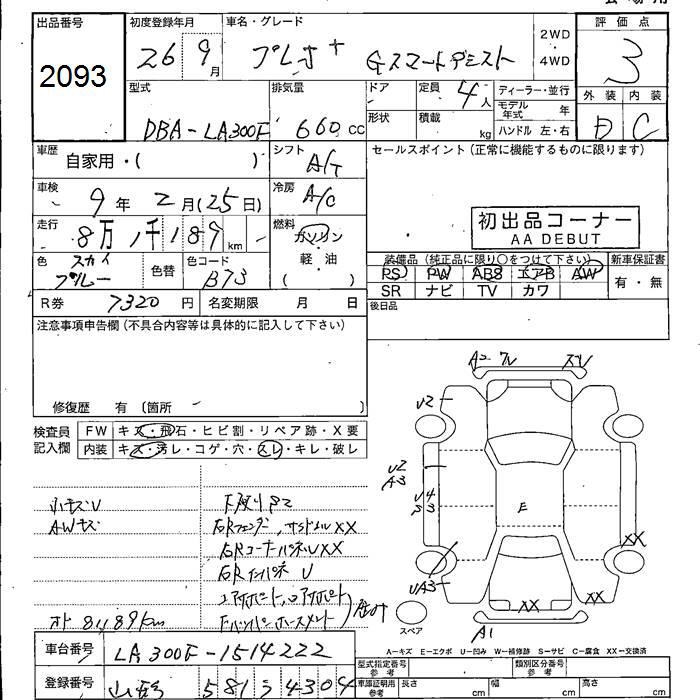 出品番号
2093
初度登録年月
26 9月
車名・グレード
Gスマートアシスト
2WD
・
4WD
評 価 点
3
外 装 内 装
D C
型式
DBA-LA300F
排気量
660 cc
ドア
定員
4人
形状
積載
kg
ディーラー・並行
モデル年式 年
ハンドル 左・右
車歴
自家用・( )
シフト
A/T
セールスポイント(正常に機能するものに限ります)
車検
9年 2月(25日)
冷房
A/C
初出品コーナー
AA DEBUT
走行
8万1千189 km
燃料
ガソリン
軽・油
( )
装備品(純正品に限り○をつけて下さい)
PS PW ABS エアB AW
SR ナビ TV カワ
新車保証書
有・無
色
スカイ
ブルー
色替
色コード
B73
R券 7320 円
名変期限 月 日
後日品
注意事項申告欄(不具合内容等は具体的に記入して下さい)
修復歴 有〔箇所 〕
検査員
記入欄
FW キズ・飛石・ヒビ割・リペア跡・X要
内装 キズ・汚レ・コゲ・穴・スレ・キレ・破レ
小キズU
AWキズ
下廻りサビ
右Rフェンダー、サイドシルXX
右RコーナーパネルUXX
右Rインパネ U
メーター 81189km
A2
スレ
U2
U2
A3
U4
E
UA3
XX
XX
XX
A1
スペア
A=キズ E=エクボ U=凹み W=補修跡 S=サビ C=腐食 XX=交換済
車台番号
LA300F-1514222
登録番号
581 う 4304
型式指定番号
参考
類別区分番号
参考
車庫証明用
参考
長さ cm
幅 cm
高さ cm